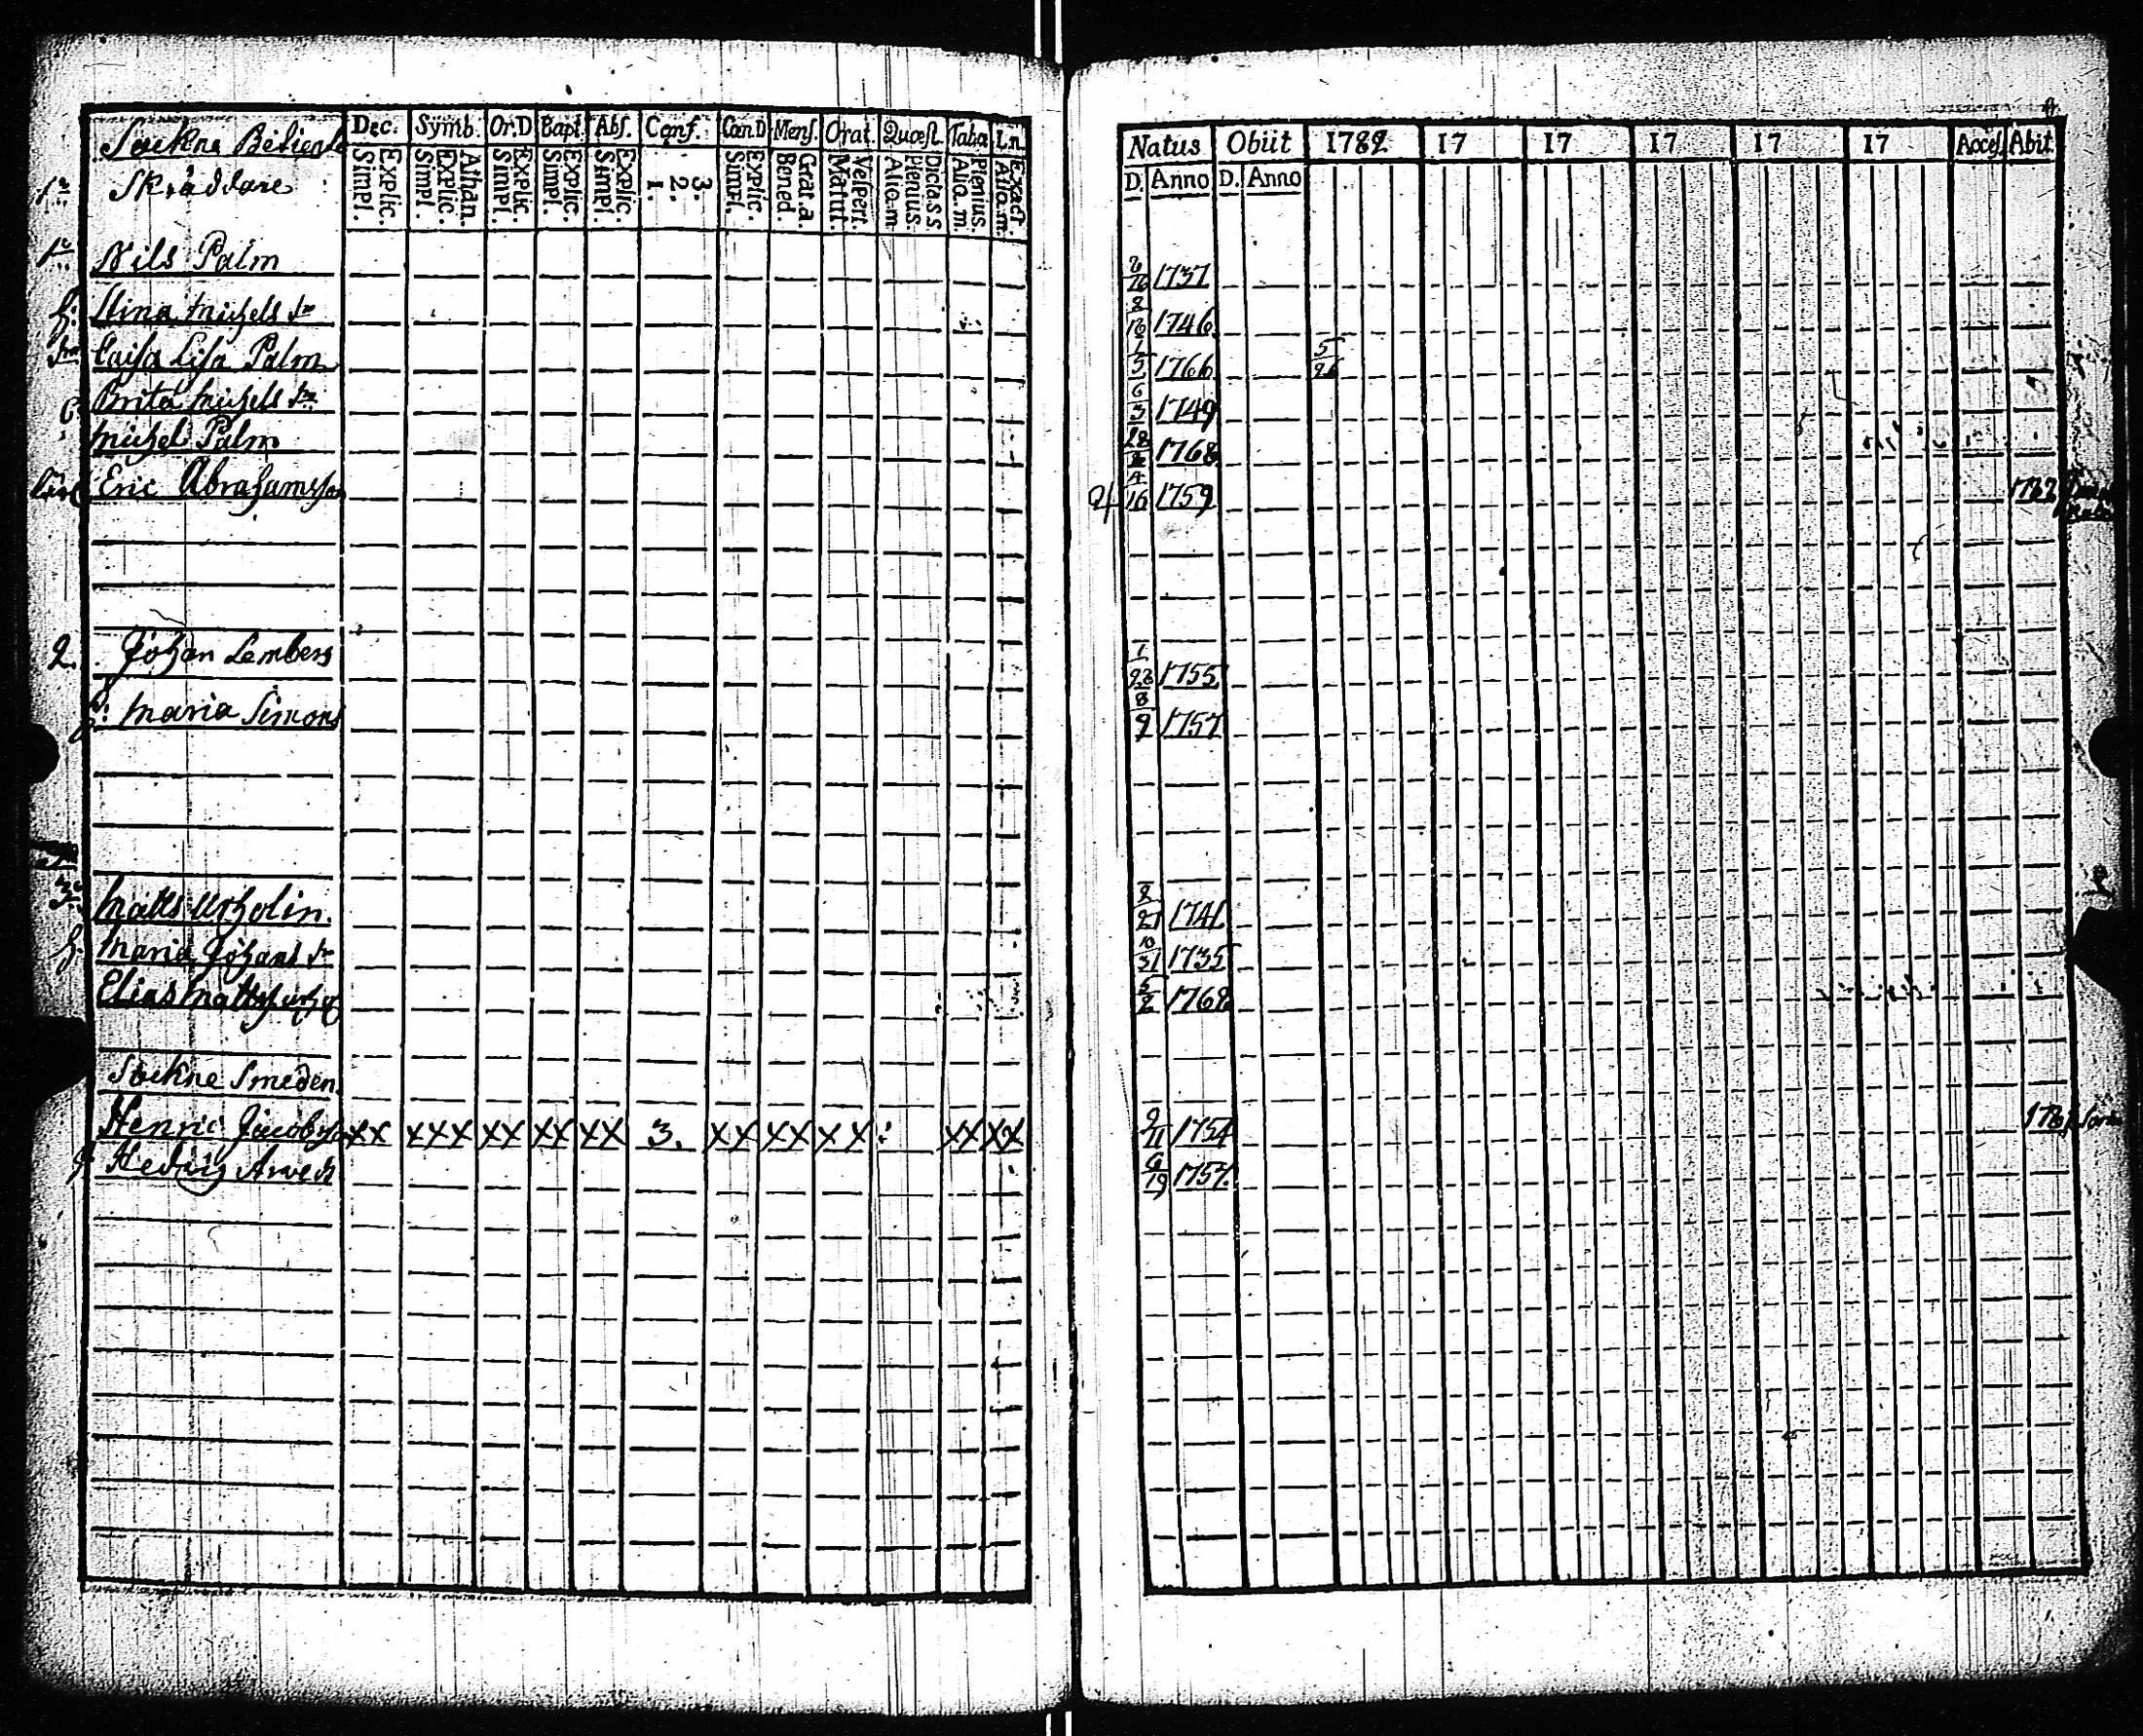 Sockne Betiente
Skräddare
Dec. Symb. Or.D Bapt. Abs. Conf. Can.D Mens. Orat. Quæst. Taba L.n.
Explic. Simpl. Athan. Explic. Simpl. Explic. Simpl. Explic. Simpl. Explic. Simpl. 3. 2. 1. Explic. Simpl. Grat.a. Bened. Vespert. Matut. Dicta.s.s Plenius. Aliq.m Plenius. Aliq.m. Exact. Aliq.m.
Natus Obiit 1782 17 17 17 17 17 Access. Abit.
D. Anno D. Anno
Nils Palm 1737
h: Stina Michels dr 1746
Caisa Lisa Palm 1 5 1766 5
Brita Michels dr 6 3 1749
Michel Palm 28 1768
Eric Abrahamsson 4 16 1759
2. Johan Lemberg 1 1755
h: Maria Simons 8 9 1757
3 Matts 2 21 1741
h: Maria Johans dr 10 31 1735
Elias 5 2 1768
Sockne Smeden
Henric Jacobsson xx xxx xx xx xx 3. xx xx xx xx xx 9 11 1754
h Hedvig 6 19 1757